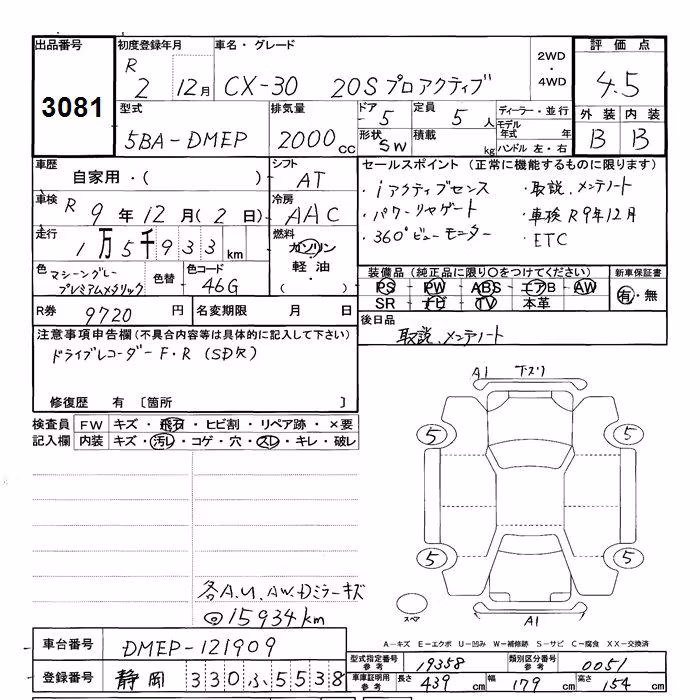 出品番号 初度登録年月 車名・グレード 2WD ・ 4WD 評価点
3081 R 2 12月 CX-30 20S プロアクティブ 4.5
型式 排気量 ドア 定員 ディーラー・並行 外装 内装
5BA-DMEP 2000cc 5 5人 モデル年式 年 B B
形状 SW 積載 kg ハンドル 左・右
車歴 自家用・( ) シフト AT
車検 R 9年12月(2日) 冷房 AAC
走行 1万5千933km 燃料 ガソリン 軽油・( )
色 マシーングレープレミアムメタリック 色替 色コード 46G
R券 9720円 名変期限 月 日
セールスポイント (正常に機能するものに限ります)
・iアクティブセンス ・取説、メンテノート
・パワーリヤゲート ・車検R9年12月
・360°ビューモニター ・ETC
装備品(純正品に限り○をつけてください) 新車保証書
PS ・ PW ・ ABS ・ エアB ・ AW 有・無
SR ・ ナビ ・ TV ・ 本革
後日品 取説、メンテノート
注意事項申告欄(不具合内容等は具体的に記入して下さい)
ドライブレコーダーF・R (SD欠)
修復歴 有 〔箇所 〕
検査員記入欄 FW キズ・飛石・ヒビ割・リペア跡・×要
内装 キズ・汚レ・コゲ・穴・スレ・キレ・破レ
A1 下スリ
5 5
5 5
スペア
A1
各A.U、AW、Dミラーキズ
◎15934km
A-キズ E-エクボ U-凹み W-補修跡 S-サビ C-腐食 XX-交換済
車台番号 DMEP-121909
登録番号 静岡 330 ふ 5538
型式指定番号 参考 19358 類別区分番号 参考 0051
車庫証明用 参考 長さ 439cm 幅 179cm 高さ 154cm